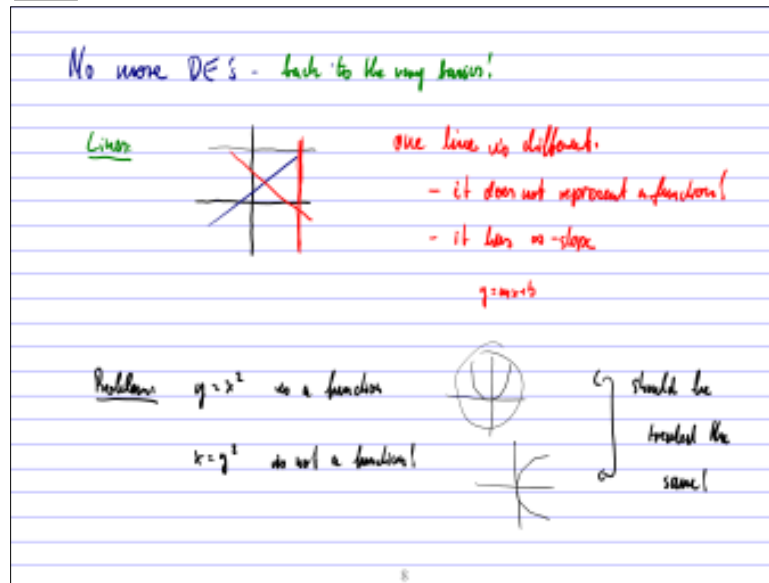 No more DE's - back to the very basics!
Lines
one line is different.
- it does not represent a function!
- it has ∞-slope
y=mx+b
Problem y=x² is a function
x=y² is not a function!
should be
treated the
same!
8